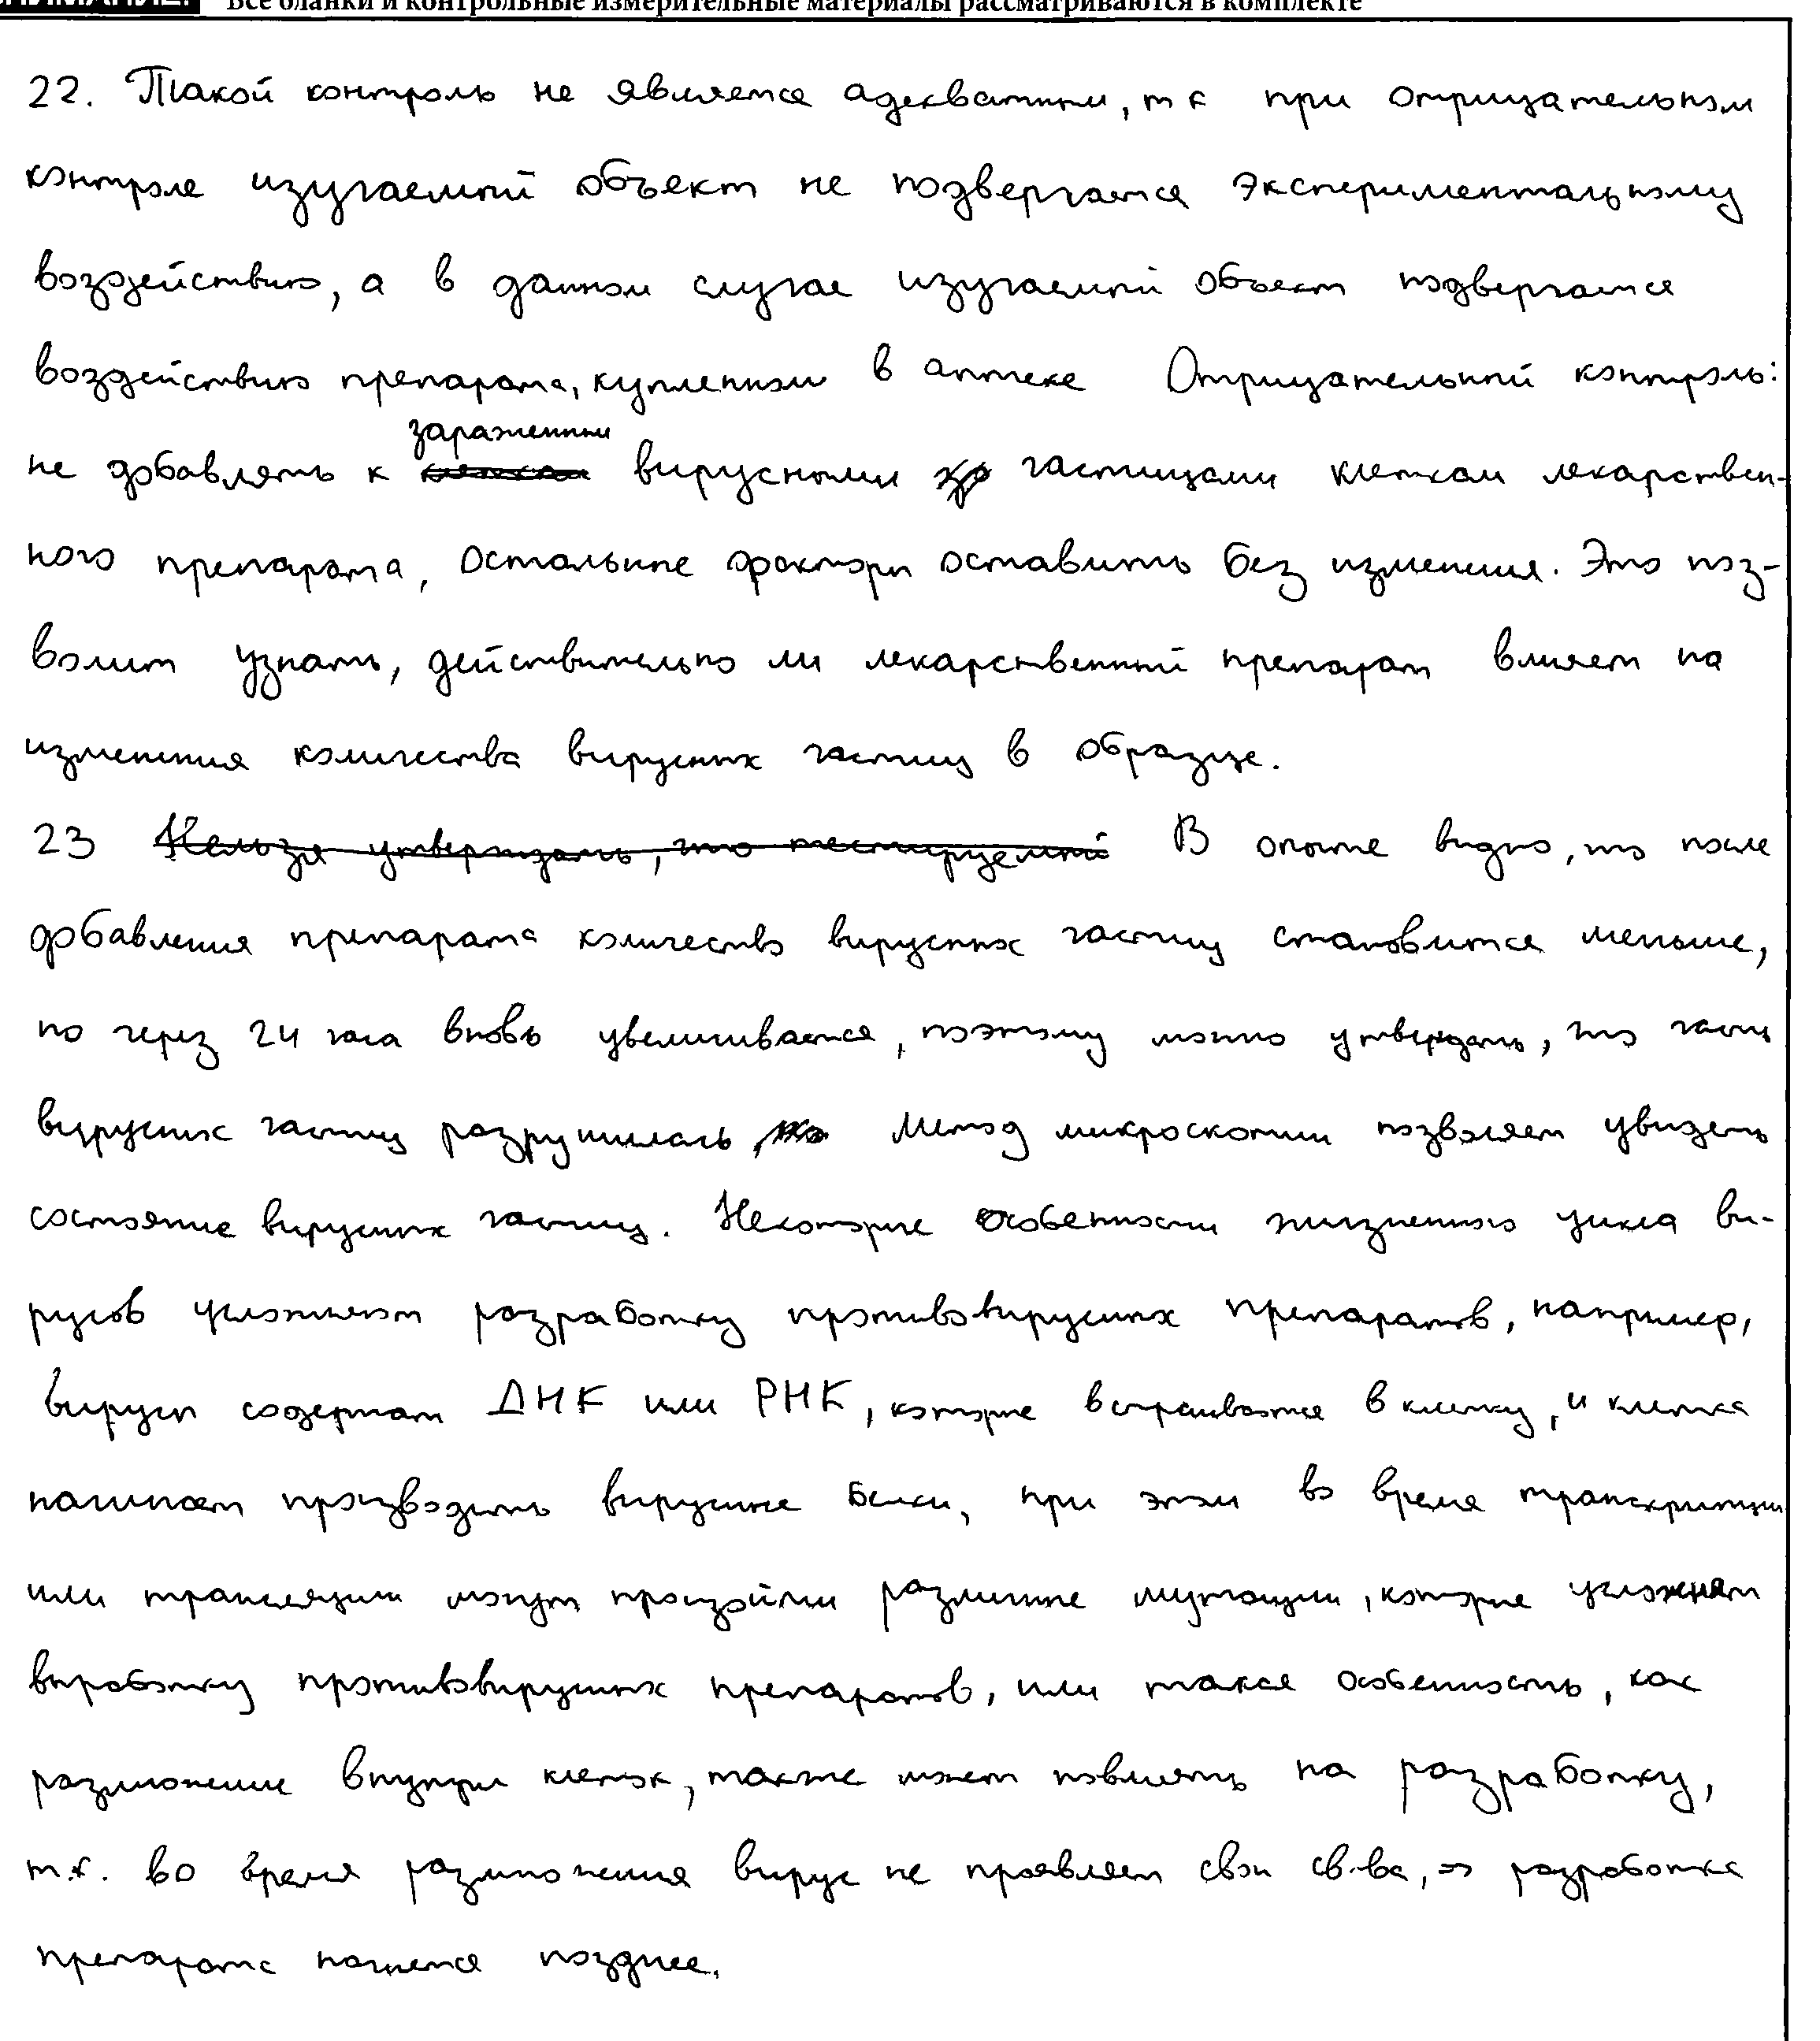 Все бланки и контрольные измерительные материалы рассматриваются в комплекте
22. Такой контроль не является адекватным, т к при отрицательном
контроле изучаемый объект не подвергается экспериментальному
воздействию, а в данном случае изучаемый объект подвергается
воздействию препарата, купленном в аптеке Отрицательный контроль:
не добавлять к зараженным вирусными частицами клеткам лекарствен-
ного препарата, остальные факторы оставить без изменения. Это поз-
волит узнать, действительно ли лекарственный препарат влияет на
изменения количества вирусных частиц в образце.
23 Нельзя утверждать, что тестируемый В опыте видно, что после
добавления препарата количество вирусных частиц становится меньше,
но через 24 часа вновь увеличивается, поэтому можно утверждать, что часть
вирусных частиц разрушилась, Метод микроскопии позволяет увидеть
состояние вирусных частиц. Некоторые особенности жизненного цикла ви-
русов усложняют разработку противовирусных препаратов, например,
вирусы содержат ДНК или РНК, которые встраиваются в клетку, и клетка
начинает производить вирусные белки, при этом во время транскрипции
или трансляции могут произойти различные мутации, которые усложнят
выработку противовирусных препаратов, или такая особенность, как
размножение внутри клеток, также может повлиять на разработку,
т.к. во время размножения вирус не проявляет свои св-ва, => разработка
препарата начнется позднее.